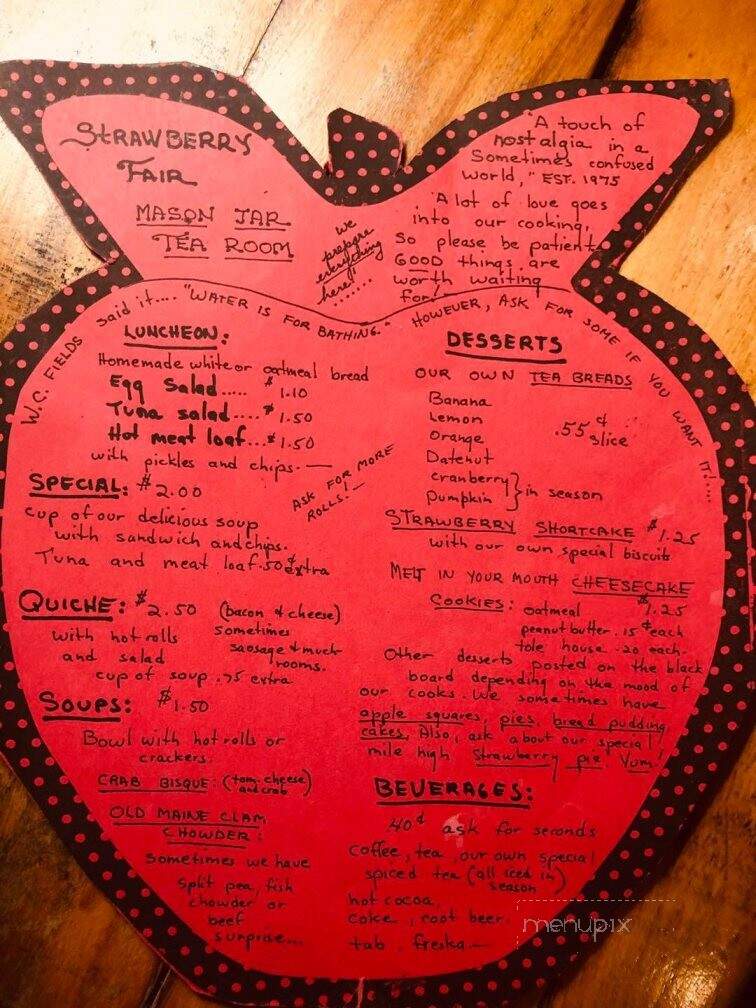 STRAWBERRY
FAIR
MASON JAR
TEA ROOM
we
prepare
everything
here!
.......
"A touch of
nostalgia in a
Sometimes confused
world," EST. 1975
A lot of love goes
into our cooking,
So please be patient
GOOD things are
worth waiting
for!
W.C. FIELDS said it.... "WATER IS FOR BATHING." HOWEVER, ASK FOR SOME IF YOU WANT IT!....
LUNCHEON:
Homemade white or oatmeal bread
Egg Salad..... $1.10
Tuna salad.... $1.50
Hot meat loaf... $1.50
with pickles and chips.—
ASK FOR MORE
ROLLS.—
SPECIAL: $2.00
cup of our delicious soup
with sandwich and chips.
Tuna and meat loaf .50¢ extra
QUICHE: $2.50 (bacon & cheese)
with hot rolls
and salad
sometimes
sausage & mush
rooms.
cup of soup .75 extra
SOUPS: $1.50
Bowl with hot rolls or
crackers.
CRAB BISQUE: (tom. cheese
and crab)
OLD MAINE CLAM
CHOWDER:
Sometimes we have
split pea, fish
chowder or
beef
surprise...
DESSERTS
OUR OWN TEA BREADS
Banana
Lemon
Orange
Datenut
.55¢
slice
Cranberry
Pumpkin } in season
STRAWBERRY SHORTCAKE $1.25
with our own special biscuits
MELT IN YOUR MOUTH CHEESECAKE
$1.25
COOKIES: oatmeal
peanut butter .15¢ each
tole house .20 each.
Other desserts posted on the black
board depending on the mood of
our cooks. We sometimes have
apple squares, pies, bread pudding,
cakes, Also, ask about our special
mile high Strawberry pie! Yum!
BEVERAGES:
40¢ ask for seconds
coffee, tea, our own special
spiced tea (all iced in
season)
hot cocoa,
coke, root beer.
tab, freska—
menupix